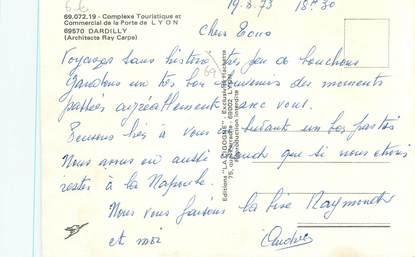 69.072.19 - Complexe Touristique et
Commercial de la Porte de LYON
69570 DARDILLY
(Architecte Ray Carpe)
19.8.73 18h30
Cher
Voyages sans histoire très peu de bouchons
Gardons un très bon souvenir des moments
passées agréablement avec vous.
Pensons bien à vous en buvant un bon pastis
Nous avons eu aussi chaud que si nous étions
restés à la Napoule.
Nous vous faisons la bise Raymonde
et moi
André
Editions "LA CIGOGNE"
75, 69002 LYON